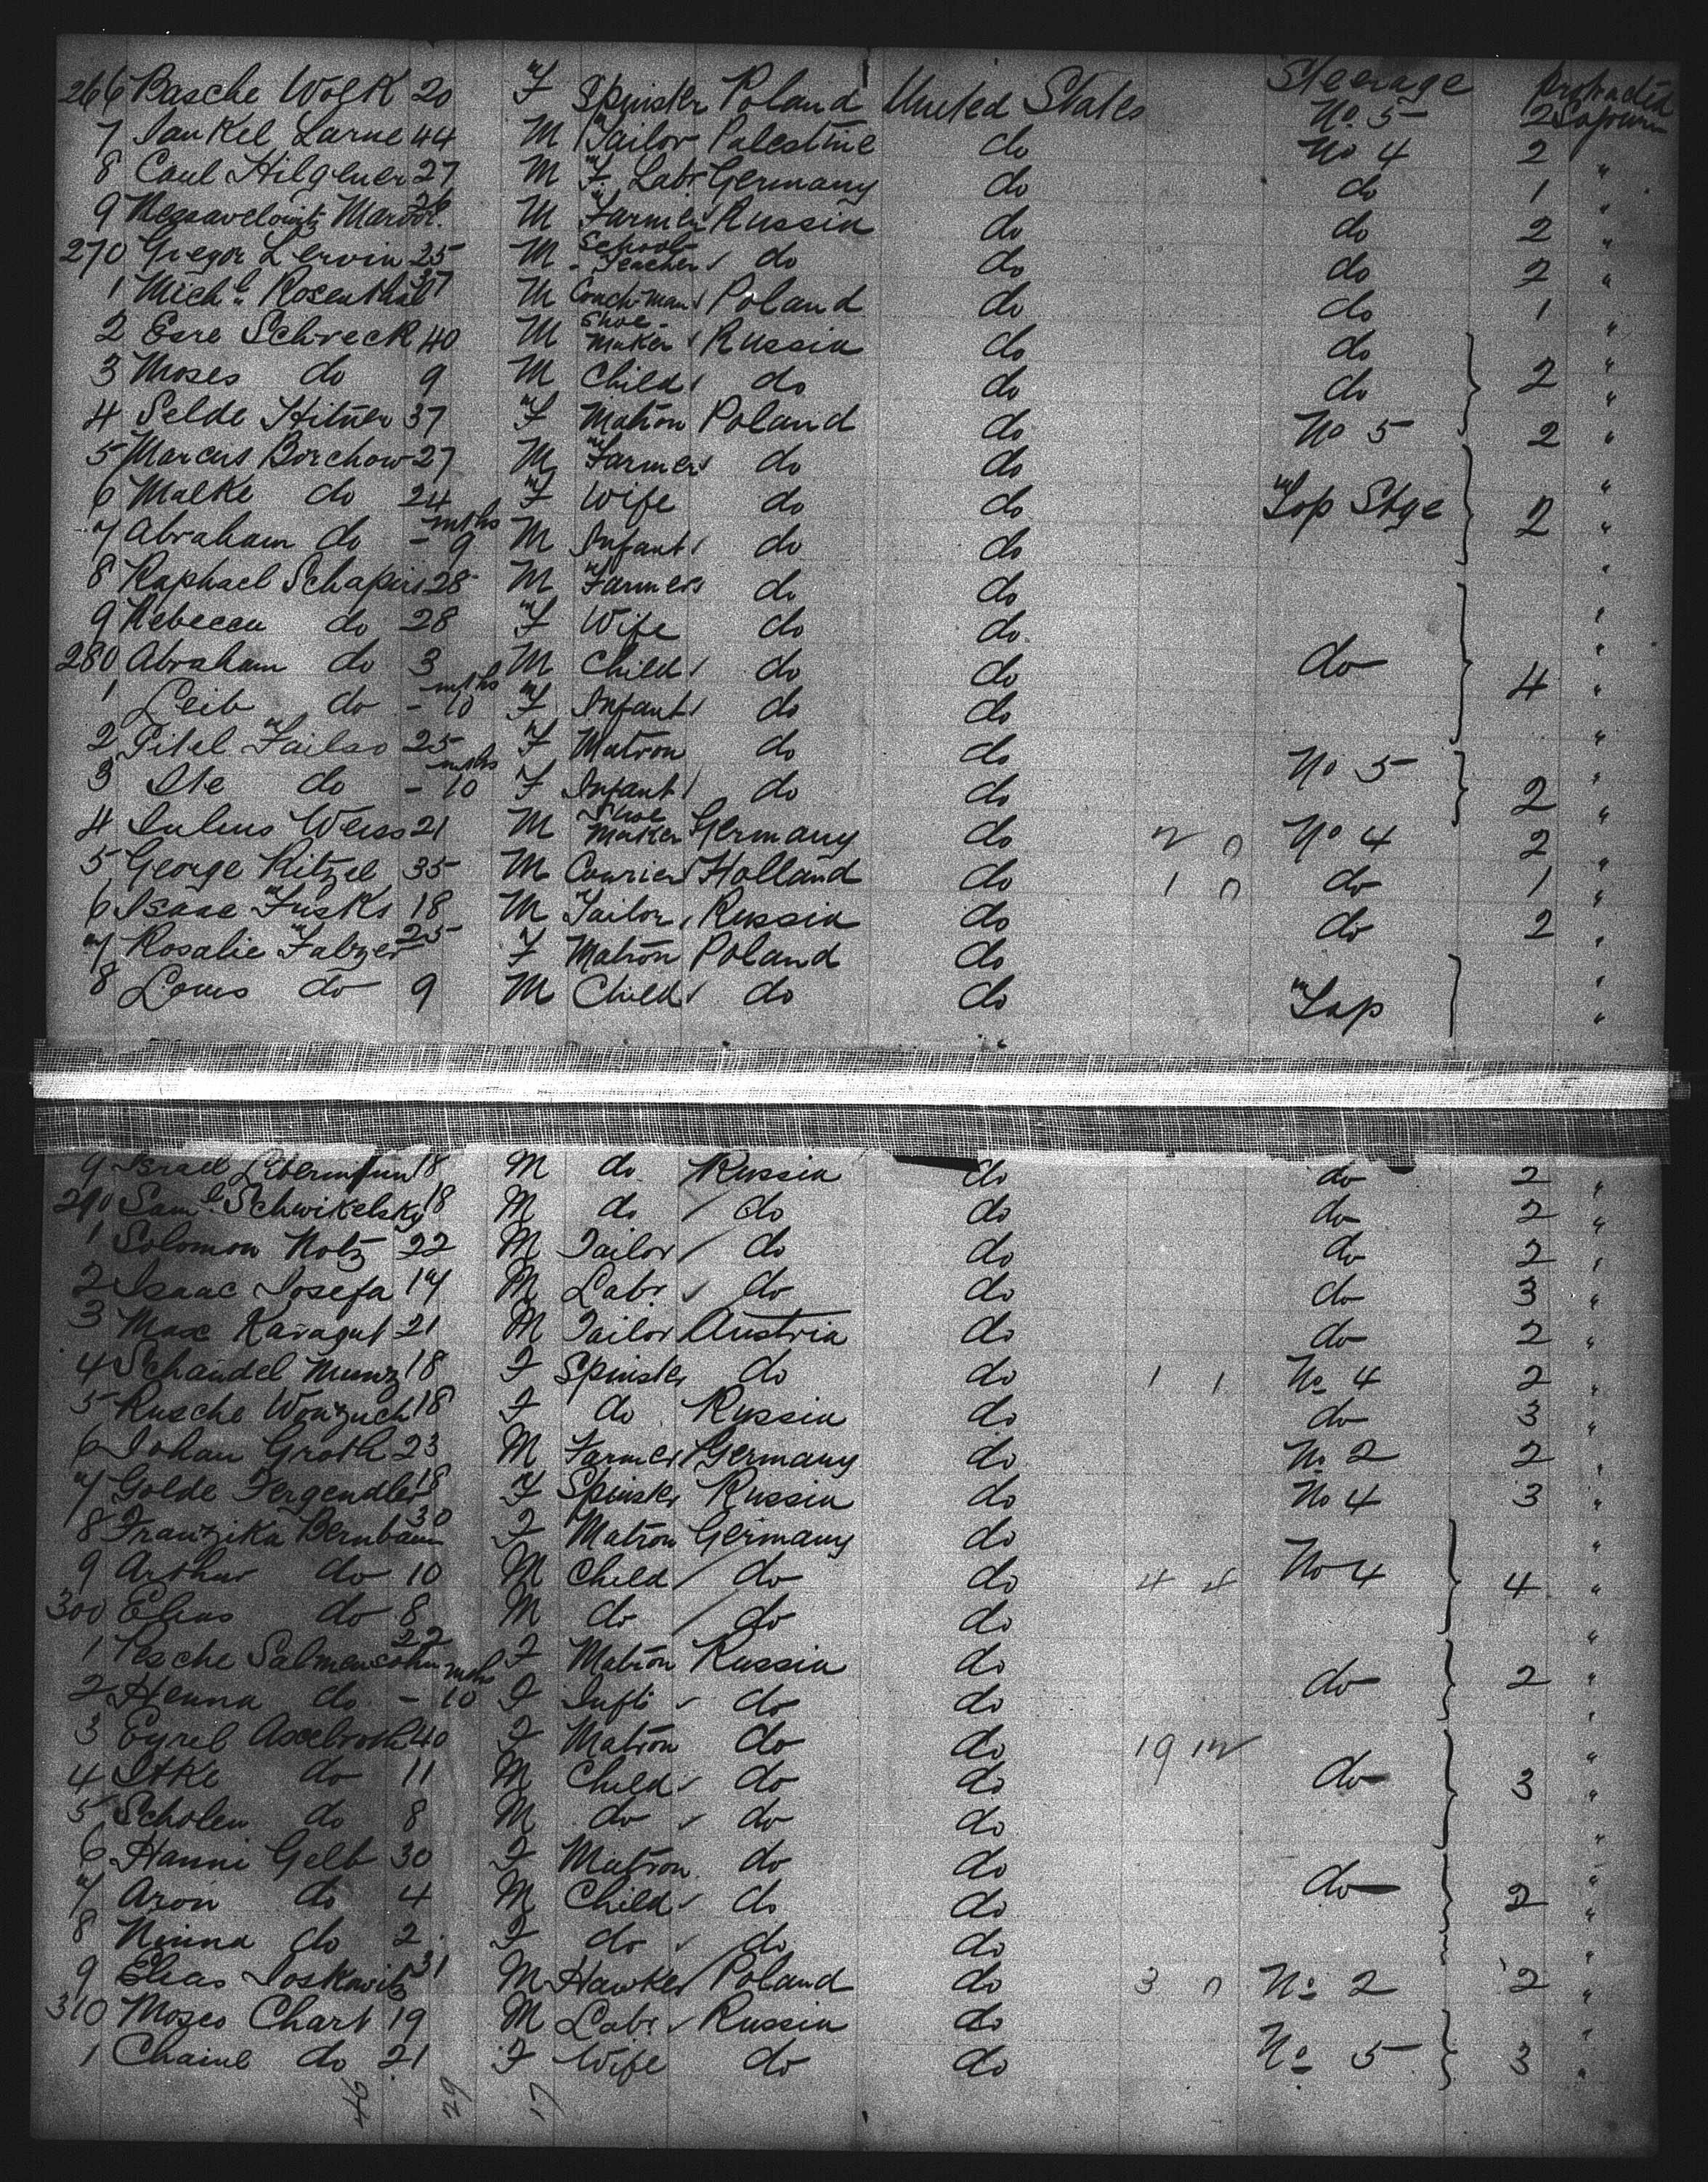 266 Basche Wolk 20 F Spinster Poland United States Steerage No. 5 2 protracted Sojourn
7 Jankel Larne 44 M Tailor Palestine do No 4 2 "
8 Hilgener 27 M F. Labr Germany do do 1 "
9 26 M Farmer Russia do do 2 "
270 Gregor Lervin 25 M School Teacher do do do 2 "
1 Michl. Rosenthal 37 M Coachman Poland do do 1 "
2 Esre Schreck 40 M Shoe Maker Russia do do "
3 Moses do 9 M Child do do do 2 "
4 Selde Hitner 37 F Matron Poland do No 5 2 "
5 Marcus Borchow 27 M Farmer do do "
6 Malke do 24 F Wife do do Top Stge 2 "
7 Abraham do - 9 mths M Infant do do "
8 Raphael Schapiro 28 M Farmer do do "
9 Rebecca do 28 F Wife do do "
280 Abraham do 3 M Child do do do 4 "
1 Leib do - 10 mths F Infant do do "
2 Pitel 25 F Matron do do No 5 "
3 Ite do - 10 mths F Infant do do 2 "
4 Julius Weiss 21 M Shoe Maker Germany do No 4 2 "
5 George Ritzel 35 M Courier Holland do 1 0 do 1 "
6 Isaac Fusks 18 M Tailor Russia do do 2 "
7 Rosalie Falzer 25 F Matron Poland do "
8 Louis do 9 M Child do do Top "
9 Israel 18 M do Russia do do 2 "
290 Saml Schwikelsky 18 M do do do do 2 "
1 Solomon Notz 22 M Tailor do do do 2 "
2 Isaac Josefa 17 M Labr do do do 3 "
3 Max Karagut 21 M Tailor Austria do do 2 "
4 Schandel Munz 18 F Spinster do do 1 1 No 4 2 "
5 Rusche 18 F do Russia do do 3 "
6 Johan Groth 23 M Farmer Germany do No 2 2 "
7 Golde Fergendler 18 F Spinster Russia do No 4 3 "
8 Franzika Bernbaum 30 F Matron Germany do "
9 Arthur do 10 M Child do do 4 4 No 4 4 "
300 Elias do 8 M do do do "
1 Pesche Salmensohn 22 F Matron Russia do "
2 Henna do - 10 mths F Inft do do do 2 "
3 Eyrel Axelroth 40 F Matron do do 19 "
4 Itke do 11 M Child do do do 3 "
5 Scholem do 8 M do do do "
6 Hanni Gelb 30 F Matron do do "
7 Aron do 4 M Child do do do 2 "
8 Ninna do 2 F do do do "
9 Elias Joskowitz 31 M Hawker Poland do 3 0 No 2 2 "
310 Moses Chart 19 M Labr Russia do "
1 Chaine do 21 F Wife do do No 5 3 "
29 17